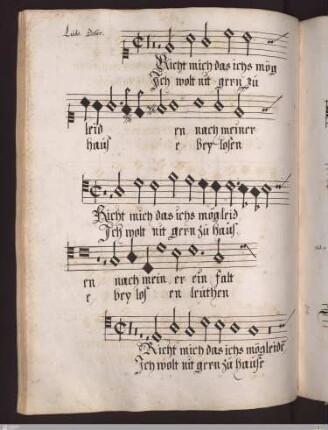 Richt mich das ichs mög
Ich wolt nit gern zu
leid en nach meiner
haus e bey losen
Richt mich das ichs mög leid
Ich wolt nit gern zu haus
en nach mein er ein falt
e bey los en leuthen
Richt mich das ichs mög leidē
Ich wolt nit gern zu hause